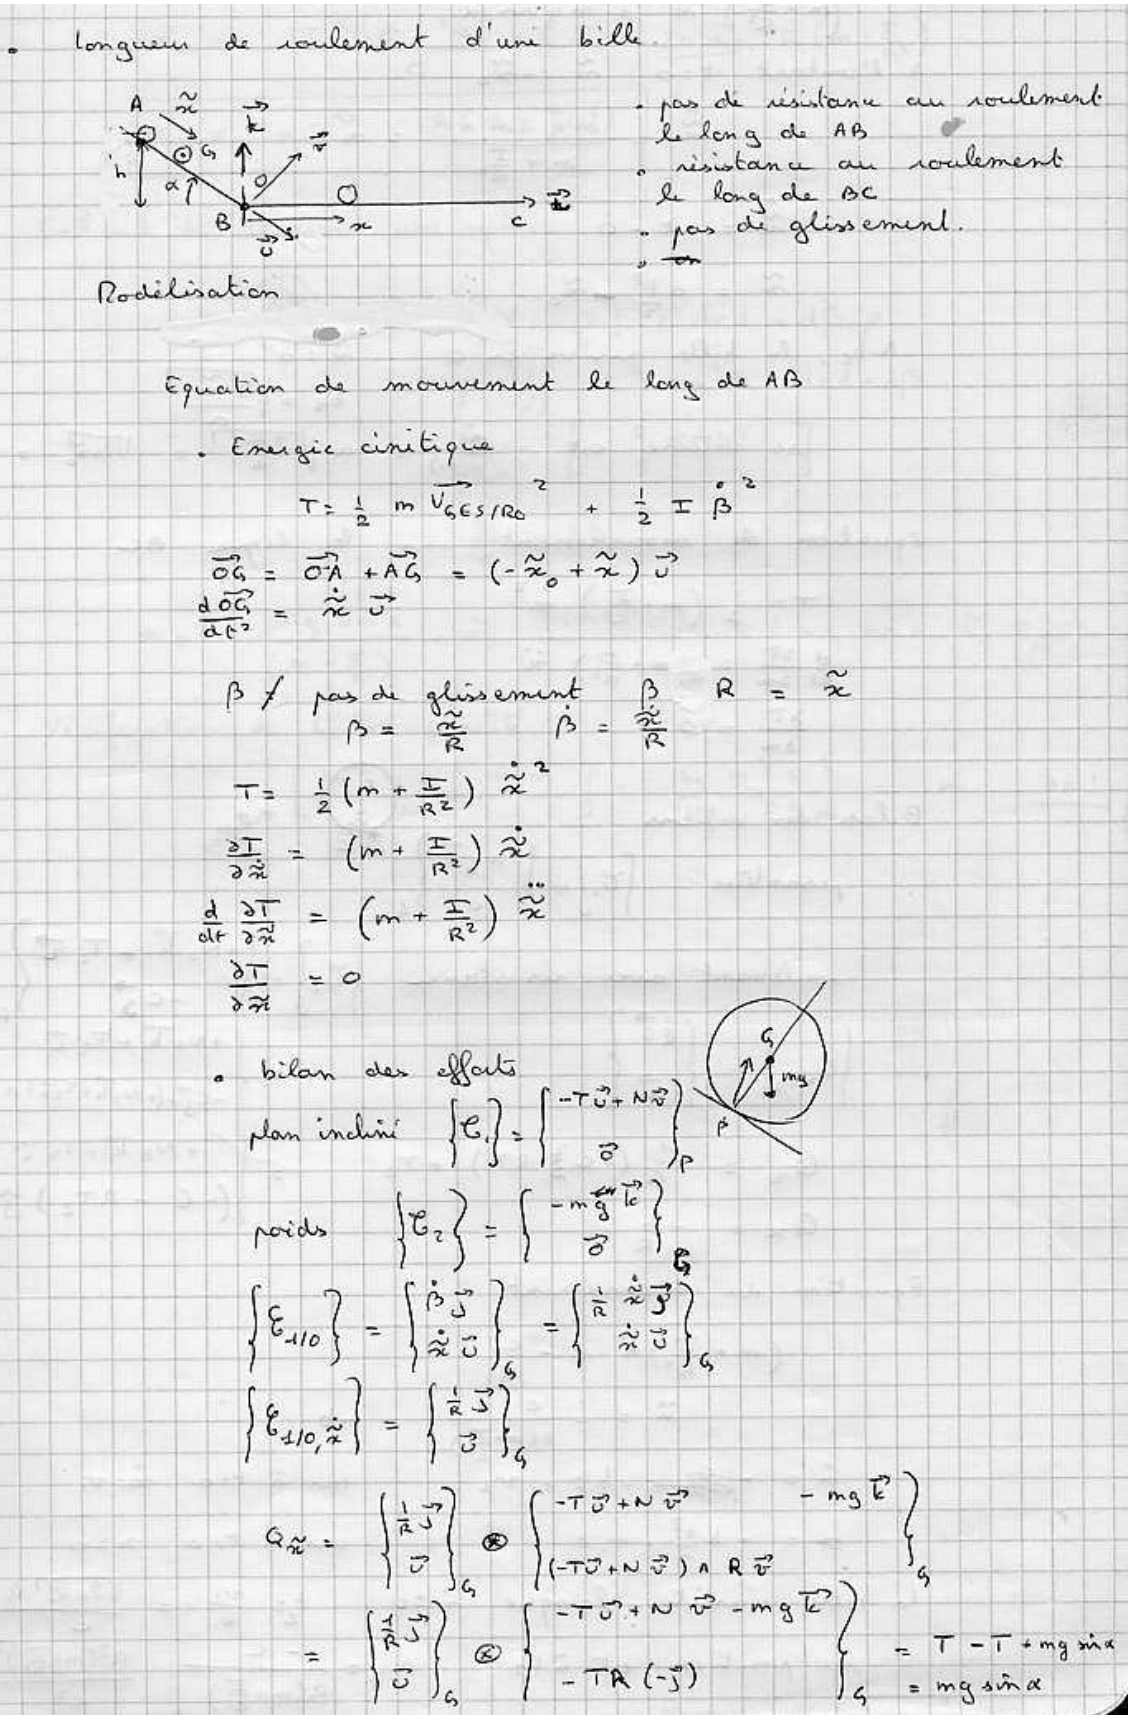 • longueur de roulement d'une bille.
A x̃ k⃗
h G α O v⃗
B u⃗ x C
• pas de résistance au roulement
le long de AB
• résistance au roulement
le long de BC
• pas de glissement.
Modélisation
Equation de mouvement le long de AB
• Energie cinétique
T = 1/2 m V⃗G∈S/R0² + 1/2 I β̇²
OG⃗ = OA⃗ + AG⃗ = (-x̃₀ + x̃) u⃗
dOG⃗/dt² = x̃̇ u⃗
β / pas de glissement β R = x̃
β = x̃/R β̇ = x̃̇/R
T = 1/2 (m + I/R²) x̃̇²
∂T/∂x̃̇ = (m + I/R²) x̃̇
d/dt ∂T/∂x̃̇ = (m + I/R²) x̃̈
∂T/∂x̃ = 0
• bilan des efforts
G mg P
plan incliné {𝒯₁} = {-T u⃗ + N v⃗ ; 0⃗}P
poids {𝒯₂} = {-mg k⃗ ; 0⃗}G
{𝒞1/0} = {β̇ j⃗ ; x̃̇ u⃗}G = {1/R x̃̇ j⃗ ; x̃̇ u⃗}G
{𝒞1/0,x̃̇} = {1/R j⃗ ; u⃗}G
Qx̃ = {1/R j⃗ ; u⃗}G ⊗ {-T u⃗ + N v⃗ - mg k⃗ ; (-T u⃗ + N v⃗) ∧ R v⃗}G
= {1/R j⃗ ; u⃗}G ⊗ {-T u⃗ + N v⃗ - mg k⃗ ; -TR (-j⃗)}G = T - T + mg sin α
= mg sin α